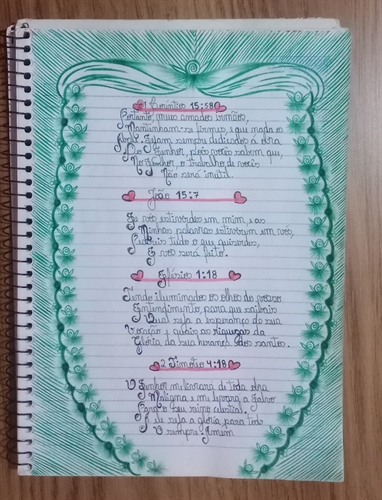 1 Coríntios 15:58
Portanto, meus amados irmãos,
Mantenham-se firmes, e que nada os
Abale. Sejam sempre dedicados à obra
Do Senhor, pois vocês sabem que,
No Senhor, o trabalho de vocês
Não será inútil.
João 15:7
Se vós estiverdes em mim, e as
Minhas palavras estiverem em vós,
Pedireis tudo o que quiserdes,
E vos será feito.
Efésios 1:18
Tendo iluminados os olhos do vosso
Entendimento, para que saibais
Qual seja a esperança da sua
Vocação e quais as riquezas da
Glória da sua herança dos santos.
2 Timóteo 4:18
O Senhor me livrará de toda obra
Maligna e me levará a salvo
Para o seu reino celestial.
A ele seja a glória para todo
O sempre. Amém